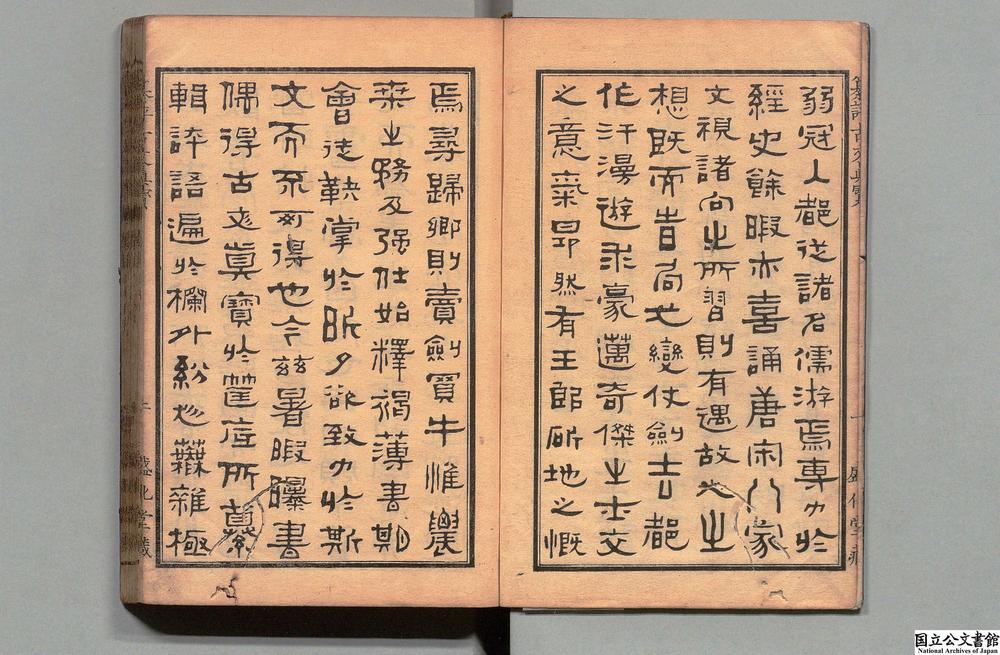 弱冠入都從諸名儒游焉專力於
經史餘暇亦喜誦唐宋八家
文視諸向之所習則有遇故之
想既而旹局變仗劍去都
作汗漫遊求豪邁奇傑之士交
之意氣昂然有王郎斫地之慨
焉尋歸鄉則賣劍買牛惟農
桒之務及强仕始釋褐薄書期
會徒鞅掌於昕夕欲致力於斯
文而不可得也今兹暑暇曝書
偶得古文眞寶於筐底所纂
輯評語遍於欄外紛然蕪雜極
盛化堂藏
国立公文書館
National Archives of Japan